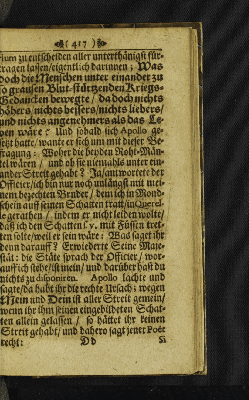 (417)
sium zu entscheiden aller unterthänigst für-
tragen lassen/eigentlich darinnen; Was
doch die Menschen unter einander zu
so grausen Blut-stürtzenden Kriegs-
Gedancken bewegte/ da doch nichts
höhers/nichts bessers/nichts liebers/
und nichts angenehmers als das Le-
ben wäre? Und sobald sich Apollo ge-
setzt hatte/wante er sich um mit dieser Be-
fragung: Woher die beyden Roht-Män-
tel wären/ und ob sie niemahls unter ein-
ander Streit gehabt? Ja/antwortete der
Officier/ich bin nur noch unlängst mit mei-
nem bezechten Bruder/dem ich in Mond-
schein auff seinen Schatten tratt/in Querel-
le gerathen/ indem er nicht leiden wolte/
daß ich den Schatten l. v. mit Füssen tret-
ten solte/weil er sein wäre. Was sagt ihr
denn darauff? Erwiederte Seine Maje-
stät: die Stäte sprach der Officier/ wor-
auff ich stehe ist mein/ und darüber hast du
nichts zu disponiren. Apollo lachte und
sagte/da habt ihr die rechte Ursach; wegen
Mein und Dein ist aller Streit gemein/
wenn ihr ihm seinen eingebildeten Schat-
ten allein gelassen/ so hättet ihr keinen
Streit gehabt/ und dahero sagt jener Poët
recht: Dd Si